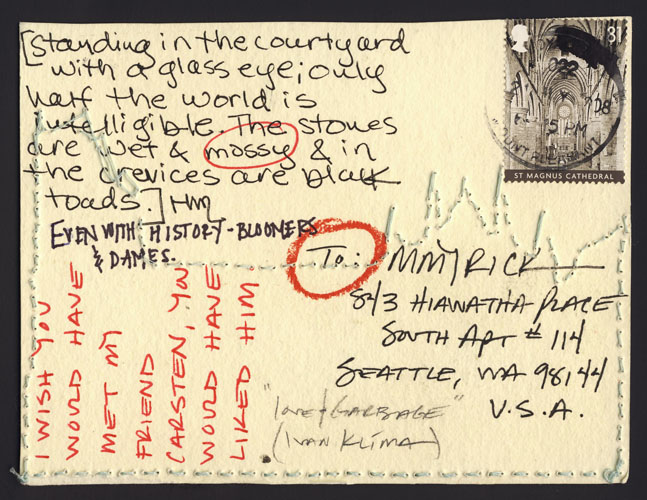 [Standing in the courtyard
with a glass eye; only
half the world is
intelligible. The stones
are wet & mossy & in
the crevices are black
toads.] HM
EVEN WITH HISTORY-BLOOMERS
& DAMES.
I WISH YOU
WOULD HAVE
MET MY
FRIEND
CARSTEN, YOU
WOULD HAVE
LIKED HIM
ST MAGNUS CATHEDRAL
5 PM
08
To: MMYRICK
HIAWATHA PLACE
SOUTH APT # 114
SEATTLE, WA 98144
U.S.A.
"love & GARBAGE"
(IVAN KLÍMA)